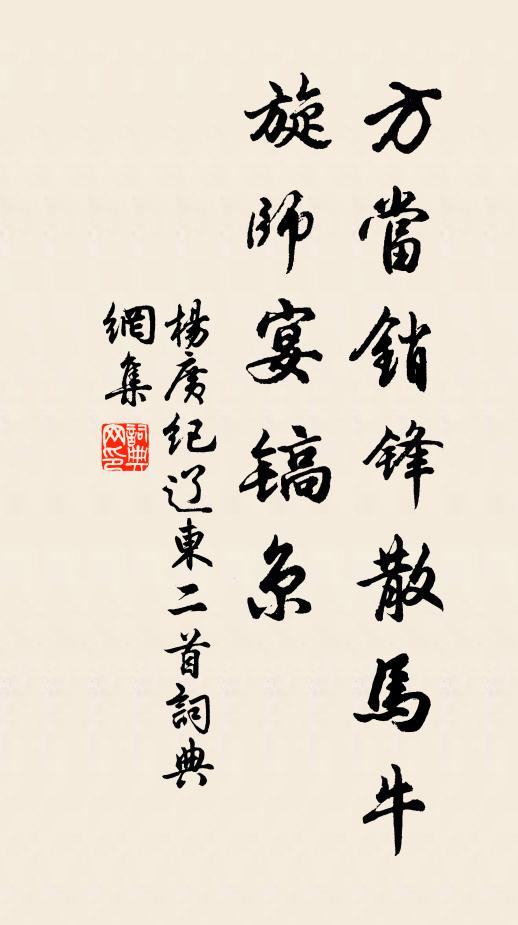 方當銷鋒散馬牛
旋師宴鎬京
楊廣纪辽東二首詞典
網集
詞典
网印